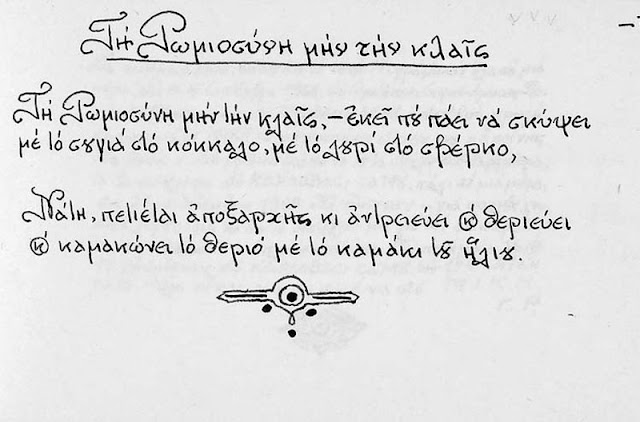 Τὴ Ρωμιοσύνη μὴν τὴν κλαῖς
Τὴ Ρωμιοσύνη μὴν τὴν κλαῖς, – ἐκεῖ ποὺ πάει νὰ σκύψει
μὲ τὸ σουγιὰ στὸ κόκκαλο, μὲ τὸ λουρὶ στὸ σβέρκο,
Νάτη, πετιέται ἀποξαρχῆς κι ἀντρειεύει κ θεριεύει
κ καμακώνει τὸ θεριὸ μὲ τὸ καμάκι τοῦ ἥλιου.